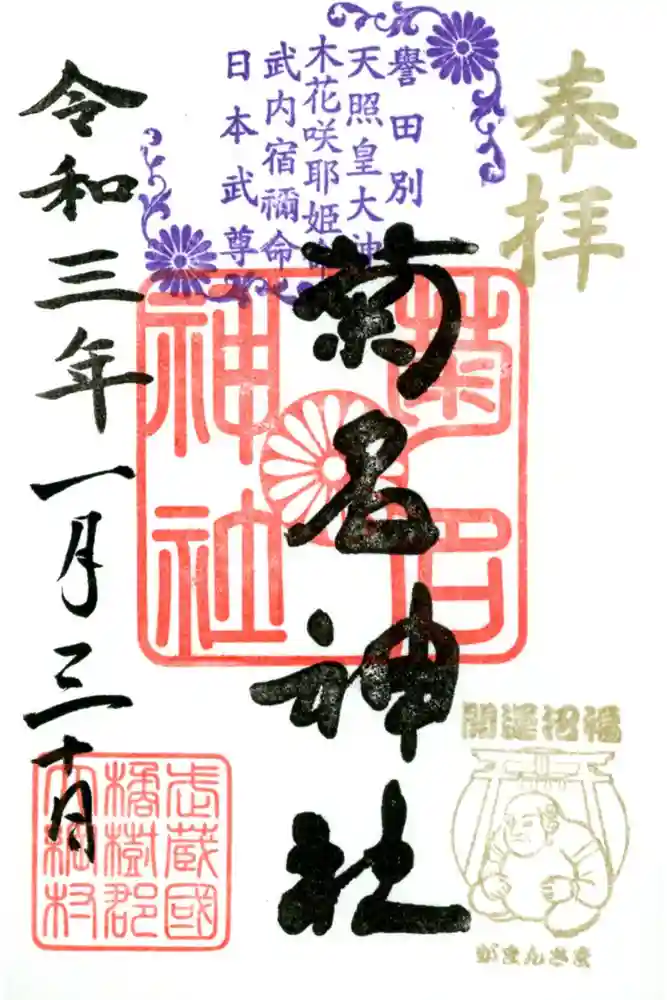 奉拝
譽田別
天照皇大神
木花咲耶姫命
武内宿禰命
日本武尊
菊名神社
菊名
神社
令和三年一月三十日
武蔵國
橘樹郡
大綱村
開運招福
がまんさま